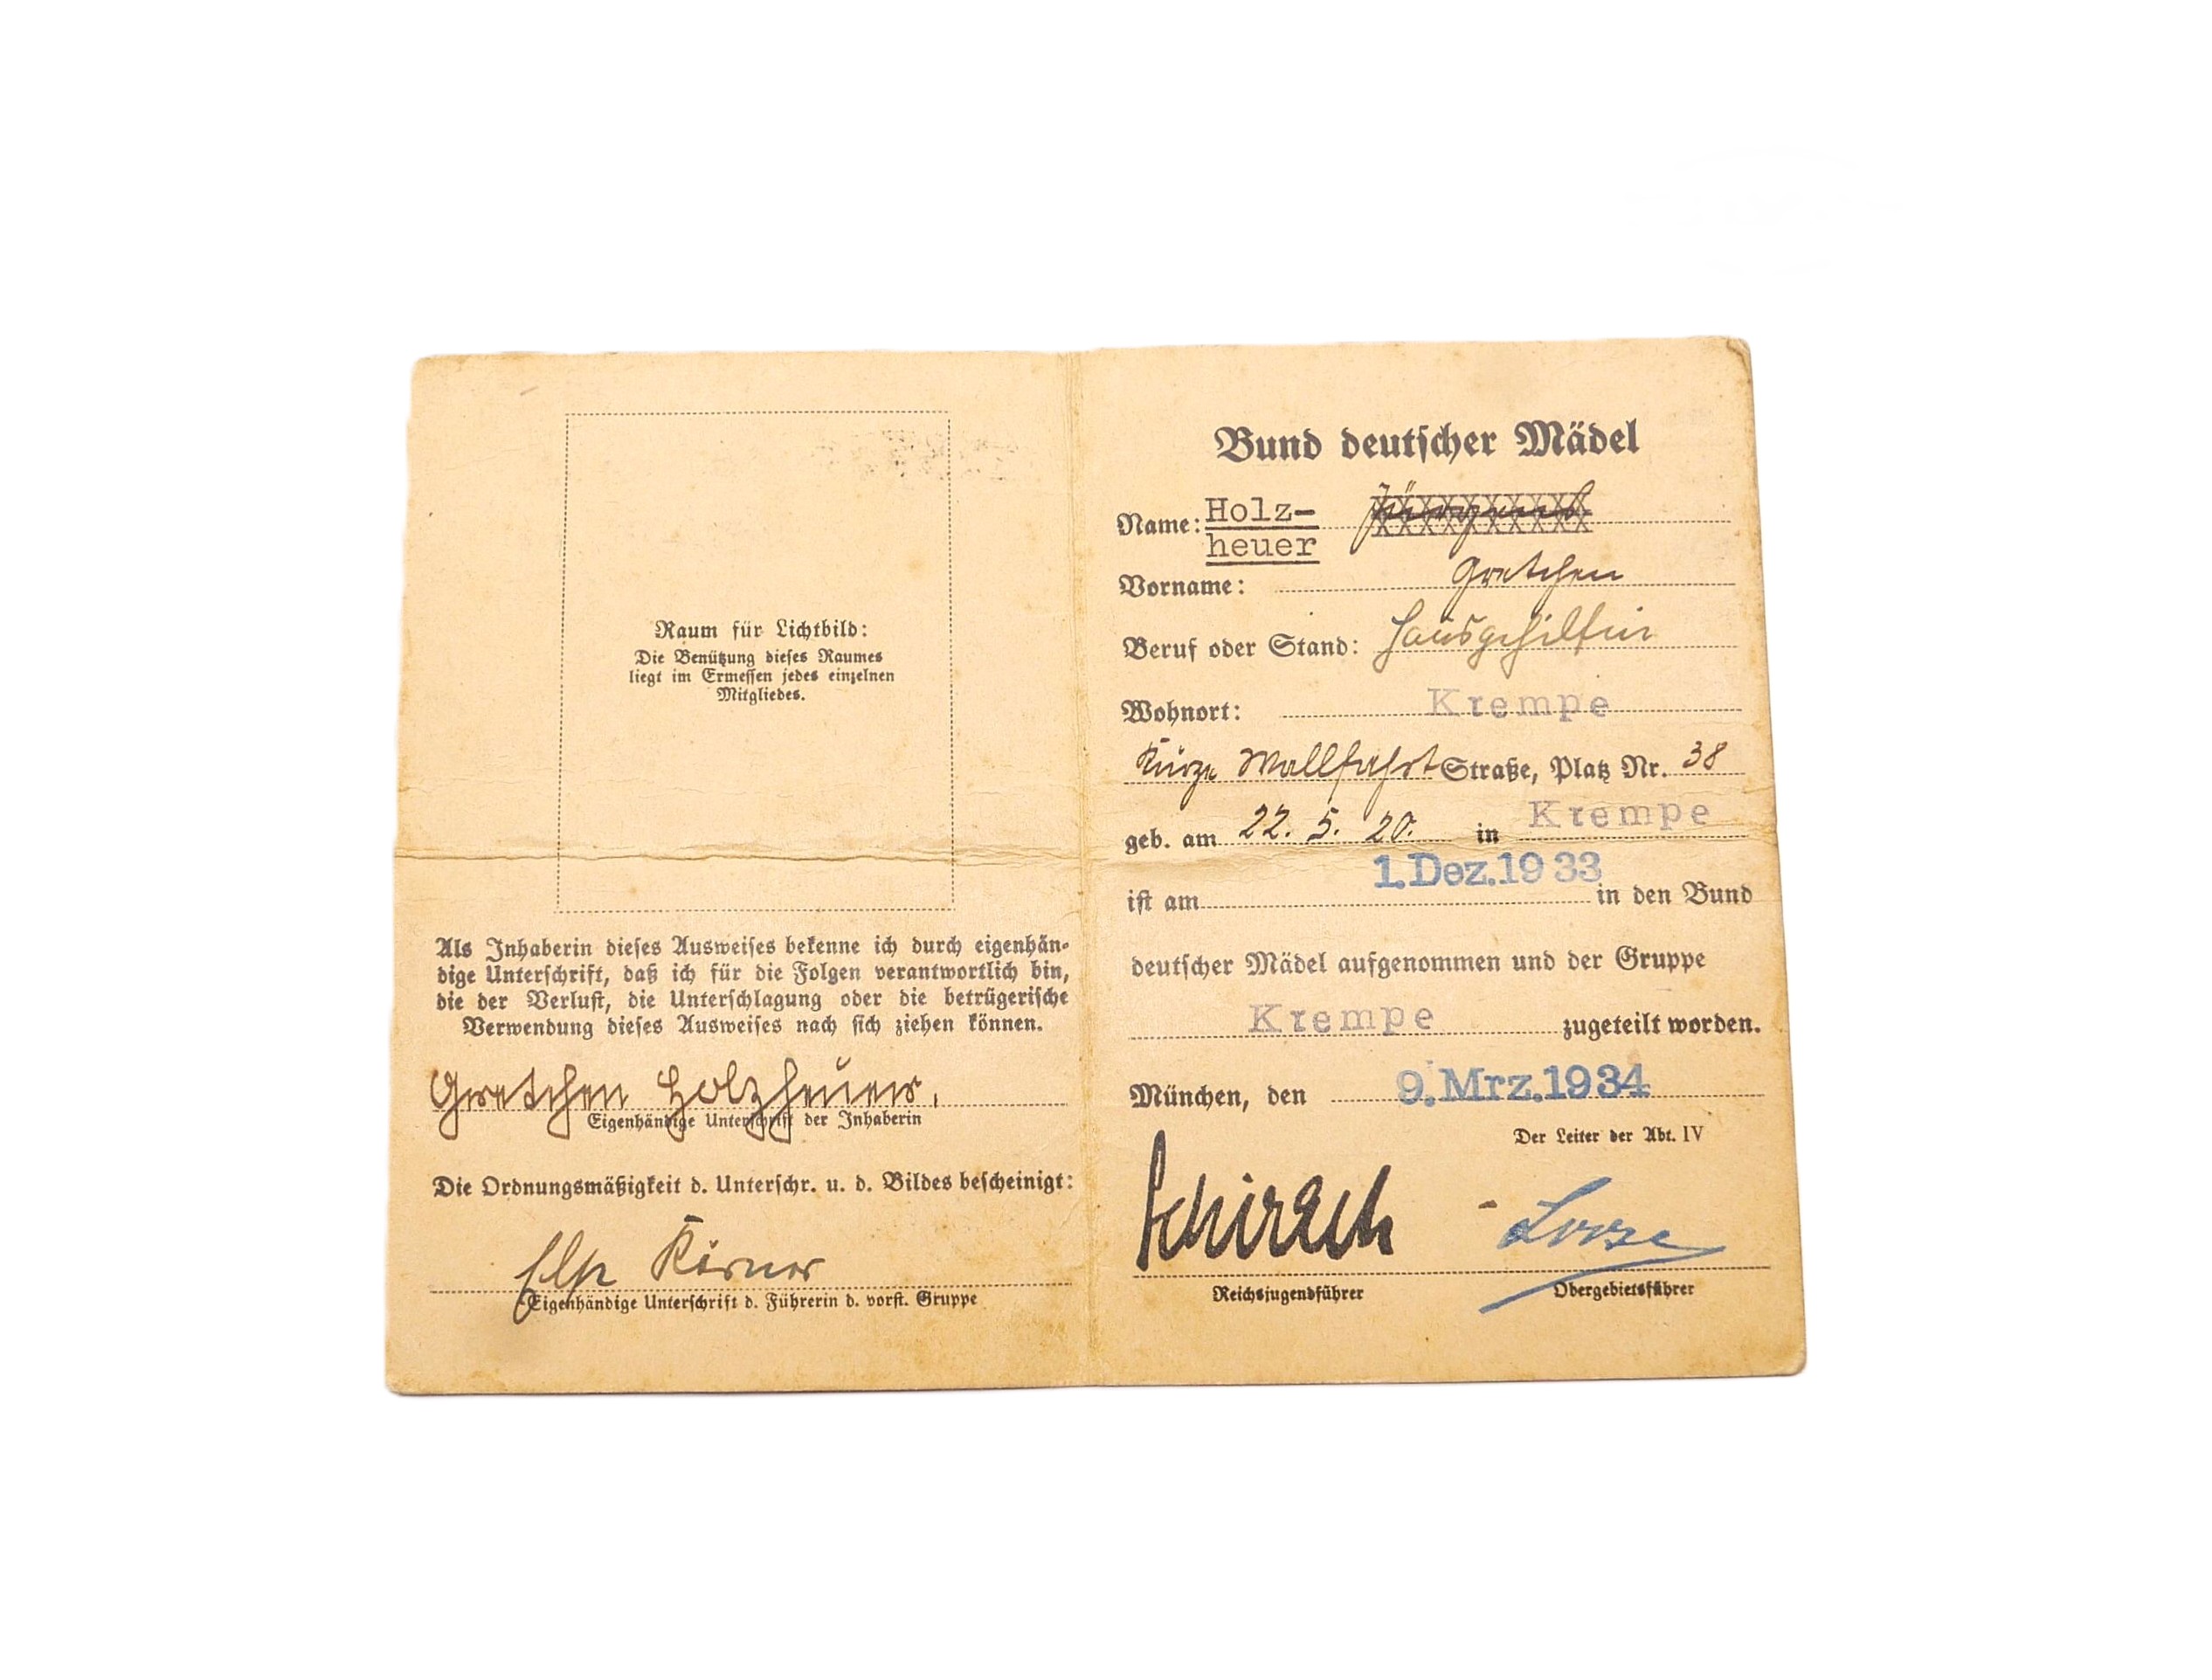 Raum für Lichtbild:
Die Benützung dieses Raumes
liegt im Ermessen jedes einzelnen
Mitgliedes.
Als Inhaberin dieses Ausweises bekenne ich durch eigenhän-
dige Unterschrift, daß ich für die Folgen verantwortlich bin,
die der Verlust, die Unterschlagung oder die betrügerische
Verwendung dieses Ausweises nach sich ziehen können.
Gretchen Holzheuer.
Eigenhändige Unterschrift der Inhaberin
Die Ordnungsmäßigkeit d. Unterschr. u. d. Bildes bescheinigt:
Körner
Eigenhändige Unterschrift d. Führerin d. vorst. Gruppe
Bund deutscher Mädel
Name: Holz-
heuer
Vorname: Gretchen
Beruf oder Stand: Hausgehilfin
Wohnort: Krempe
Kurze Wallfahrt Straße, Platz Nr. 38
geb. am 22. 5. 20. in Krempe
ist am 1. Dez. 1933 in den Bund
deutscher Mädel aufgenommen und der Gruppe
Krempe zugeteilt worden.
München, den 9. Mrz. 1934
Der Leiter der Abt. IV
Schirach
Reichsjugendführer Obergebietsführer